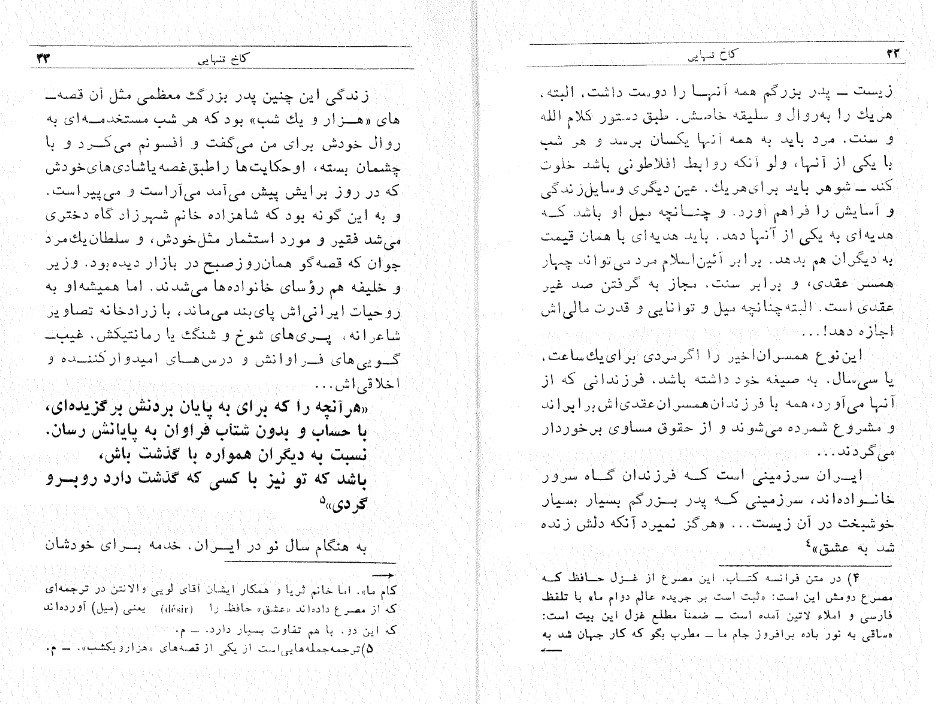 ۲۲
کاخ تنهایی
زیست ــ پدر بزرگم همه آنها را دوست داشت. البته،
هریك را به‌روال و سلیقه خاصش. طبق دستور کلام الله
و سنت. مرد باید به همه آنها یکسان برسد و هر شب
با یکی از آنها، ولو آنکه روابط افلاطونی باشد خلوت
کند ــ شوهر باید برای‌هریك. عین دیگری وسایل‌زندگی
و آسایش را فراهم آورد. و چنانچه میل او باشد که
هدیه‌ای به یکی از آنها دهد. باید هدیه‌ای با همان قیمت
به دیگران هم بدهد. برابر آئین‌اسلام مرد می‌تواند چهار
همسر عقدی، و برابر سنت. مجاز به گرفتن صد غیر
عقدی است. البته‌چنانچه میل و توانایی و قدرت مالی‌اش
اجازه دهد!...
این‌نوع همسران‌اخیر را اگرمردی برای‌یك‌ساعت،
یا سی‌سال. به صیغه خود داشته باشد. فرزندانی که از
آنها می‌آورد، همه با فرزندان‌همسران‌عقدی‌اش‌برابراند
و مشروع شمرده می‌شوند و از حقوق مساوی برخوردار
می‌گردند...
ایران سرزمینی است که فرزندان گاه سرور
خانواده‌اند، سرزمینی که پدر بزرگم بسیار بسیار
خوشبخت در آن زیست... «هرگز نمیرد آنکه دلش زنده
شد به عشق»۴
۴) در متن فرانسه کتاب. این مصرع از غزل حافظ که
مصرع دومش این است: «ثبت است بر جریده عالم دوام ما» با تلفظ
فارسی و املاء لاتین آمده است ــ ضمناً مطلع غزل این بیت است:
«ساقی به نور باده برافروز جام ما ــ مطرب بگو که کار جهان شد به
کاخ تنهایی
۲۳
زندگی این چنین پدر بزرگ معظمی مثل آن قصه‌ــ
های «هزار و یك شب» بود که هر شب مستخدمه‌ای به
روال خودش برای من می‌گفت و افسونم می‌کرد و با
چشمان بسته، اوحکایت‌ها راطبق‌غصه‌یاشادی‌های‌خودش
که در روز برایش پیش می‌آمد می‌آراست و می‌پیراست.
و به این گونه بود که شاهزاده خانم شهرزاد گاه دختری
می‌شد فقیر و مورد استثمار مثل‌خودش، و سلطان‌یك‌مرد
جوان که قصه‌گو همان‌روزصبح در بازار دیده‌بود. وزیر
و خلیفه هم رؤسای خانواده‌ها می‌شدند. اما همیشه‌او به
روحیات ایرانی‌اش پای‌بند می‌ماند، با زرادخانه تصاویر
شاعرانه، پری‌های شوخ و شنگ یا رمانتیکش. غیب‌ــ
گویی‌های فراوانش و درس‌های امیدوارکننده و
اخلاقی‌اش...
«هرآنچه را که برای به پایان بردنش برگزیده‌ای،
با حساب و بدون شتاب فراوان به پایانش رسان.
نسبت به دیگران همواره با گذشت باش،
باشد که تو نیز با کسی که گذشت دارد روبرو
گردی»۵
به هنگام سال نو در ایران. خدمه برای خودشان
کام ما». اما خانم ثریا و همکار ایشان آقای لویی والانتن در ترجمه‌ای
که از مصرع داده‌اند «عشق» حافظ را (désir) یعنی (میل) آورده‌اند
که این دو. با هم تفاوت بسیار دارد. ــ م.
۵)ترجمه‌جمله‌هایی‌است از یکی از قصه‌های «هزارویکشب». ــ م.